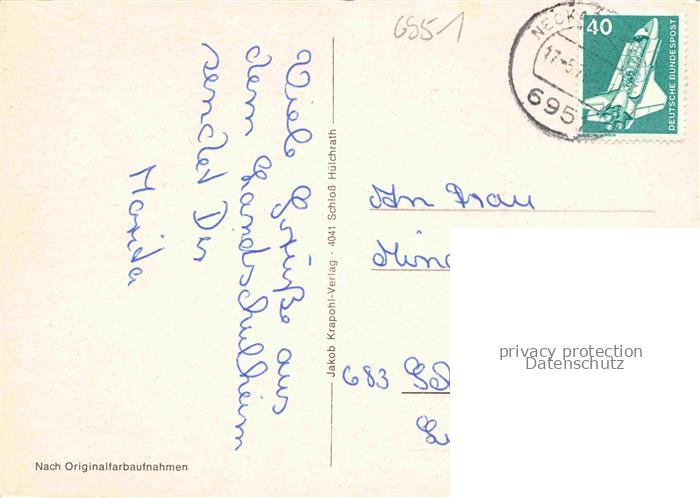 6951
NECKA
17.-5.
695
40
DEUTSCHE BUNDESPOST
Viele Grüße aus
dem Landschulheim
sendet Dir
Marita
Jakob Krapohl-Verlag · 4041 Schloß Hülchrath
An Frau
683
privacy protection
Datenschutz
Nach Originalfarbaufnahmen